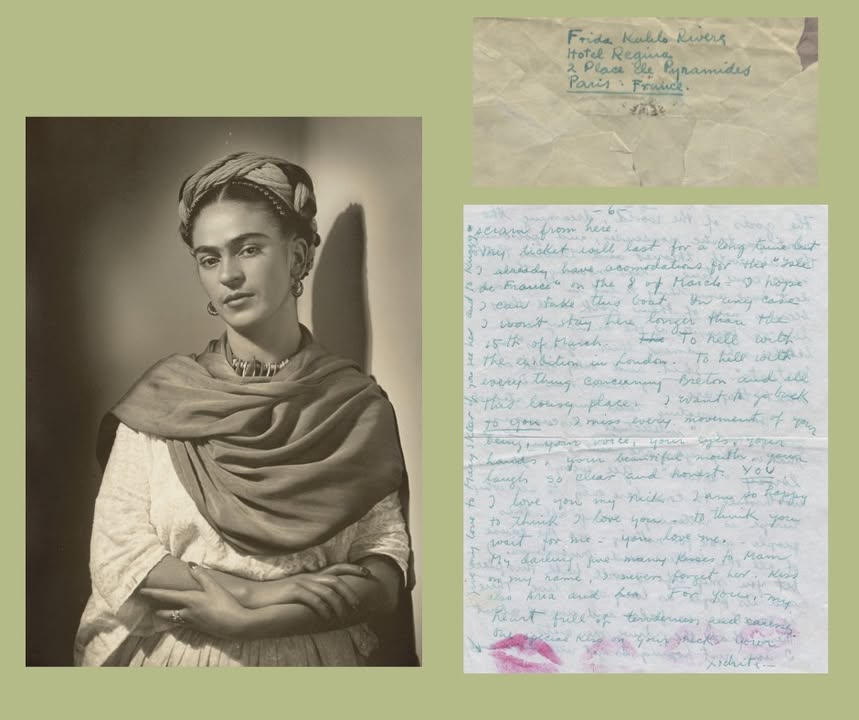 Frida Kahlo Rivera
Hotel Regina
2 Place de Pyramides
Paris - France.
- 6 -
scram from here.
My ticket will last for a long time but
I already have acomodations for the "Isle
de France" on the 8 of March. I hope
I can take this boat. In any case
I won't stay here longer than the
15th of March. To hell with
the exhibition in London. To hell with
every thing concerning Breton and all
this lousy place. I want to go back
to you. I miss every movement of your
being, your voice, your eyes, your
hands, your beautiful mouth, your
laugh so clear and honest. YOU
I love you my Nick. I am so happy
to think I love you - to think you
wait for me - you love me.
My darling give many kisses to Mam
on my name, I never forget her. Kiss
also Aria and Lea. For you, my
heart full of tenderness and caresses
One special kiss on your neck. your
Xochitl
my love to Mary Sklar if you see her and to Ruzzy